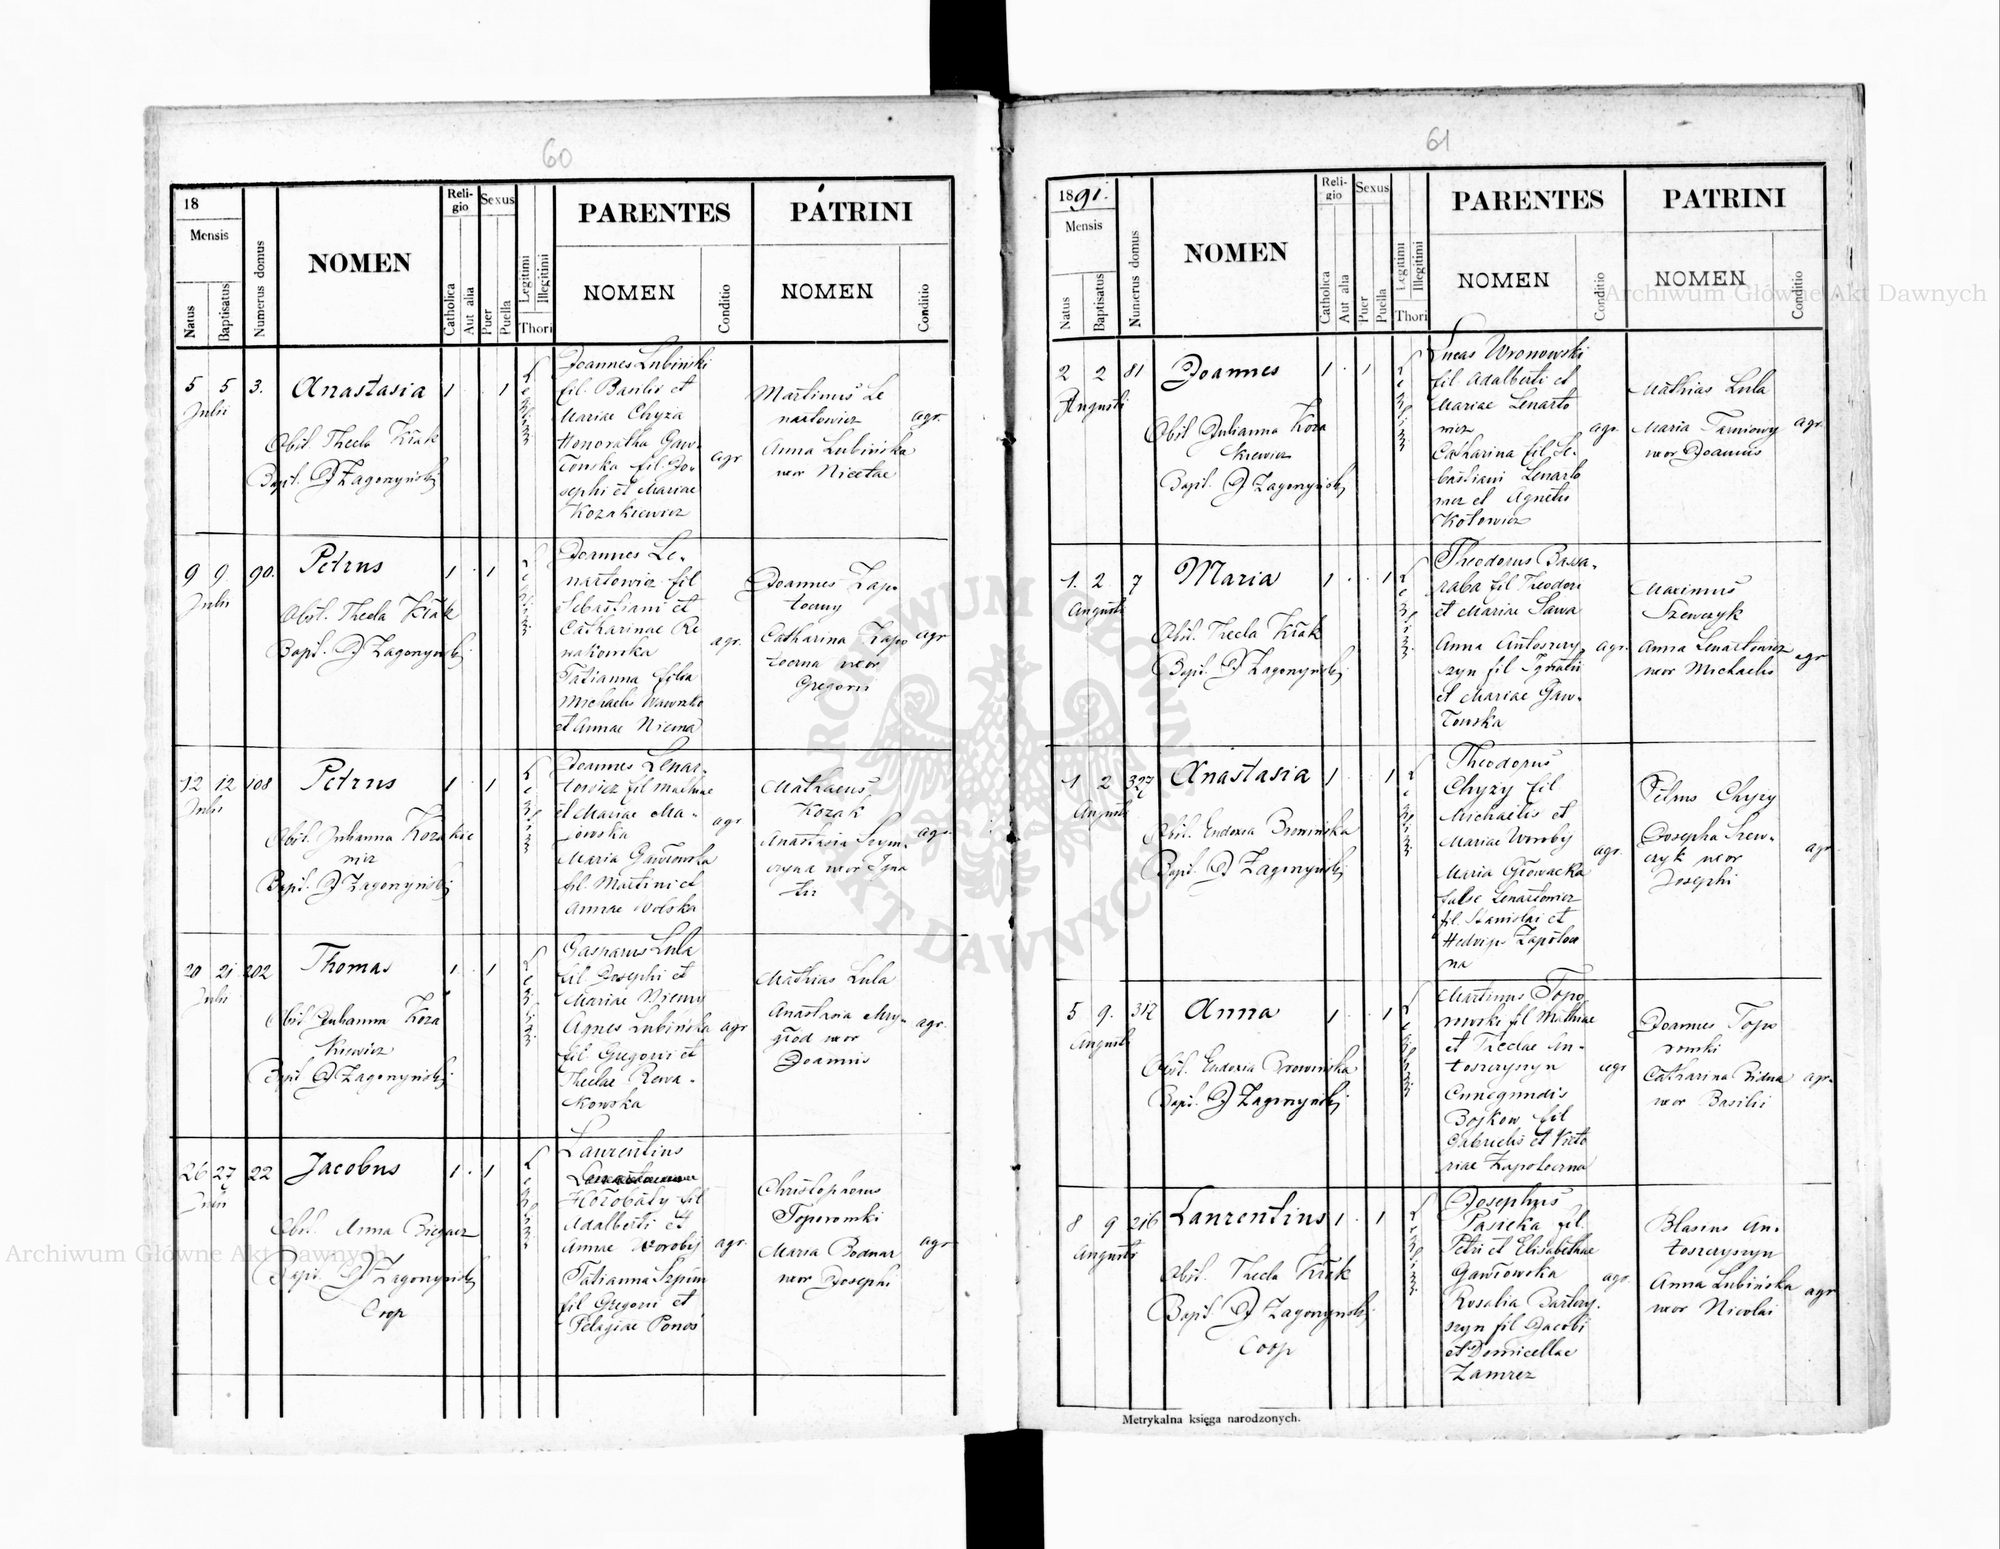 60
18
Mensis
Natus
Baptisatus
Numerus domus
NOMEN
Religio
Catholica
Aut alia
Sexus
Puer
Puella
Legitimi
Illegitimi
Thori
PARENTES
NOMEN
Conditio
PATRINI
NOMEN
Conditio
5 5 3. Anastasia 1 . . 1
Julii
Obst. Thecla Kłak
Bapt. D Zagonyński
Joannes Lubiński
fil. Basilii et
Mariae Chyza
Honoratha Gaw-
łowska fil. Jo-
sephi et Mariae
Kozakiewicz
agr
Martinus Le
nartowicz
Anna Lubińska
uxor Nicetae
agr.
9 9 90. Petrus 1 . 1
Julii
Obst. Thecla Kłak
Bapt. D Zagonyński
Joannes Le-
nartowicz fil
Sebastiani et
Catharinae Re
wakowska
Tatianna filia
Michaelis Wawryk
et Annae Niema
agr.
Joannes Zapo
toczny
Catharina Zapo
toczna uxor
Gregorii
agr
12 12 108 Petrus 1 . 1
Julii
Obst. Julianna Kozakie
wicz
Bapt. D Zagonyński
Joannes Lenar-
towicz fil Mathiae
et Mariae Ma-
jowska
Maria Gawłowska
fil. Martini et
Annae Wolska
agr
Mathaeus
Kozak
Anastasia Szym-
czyna uxor Igna
tii
agr.
20 21 202 Thomas 1 . 1
Julii
Obst Julianna Koza
kiewicz
Bapt D Zagonyński
Gasparus Lula
fil Josephi et
Mariae Niemy
Agnes Lubińska
fil Gregorii et
Theclae Rewa-
kowska
agr
Mathias Lula
Anastasia Mry-
głod uxor
Joannis
agr.
26 27 22 Jacobus 1 . 1
Julii
Obst. Anna Biegacz
Bapt. D Zagonyński
Coop
Laurentius
Hołobaty fil
Adalberti et
Annae Worobij
Tatianna Szpim
fil Gregorii et
Pelagiae Ponoś
agr.
Christophorus
Toporowski
Maria Bodnar
uxor Josephi
agr
61
1891.
Mensis
Natus
Baptisatus
Numerus domus
NOMEN
Religio
Catholica
Aut alia
Sexus
Puer
Puella
Legitimi
Illegitimi
Thori
PARENTES
NOMEN
Conditio
PATRINI
NOMEN
Conditio
2 2 81 Joannes 1 . 1
Augusti
Obst Julianna Koza
kiewicz
Bapt. D Zagonyński
Lucas Wronowski
fil Adalberti et
Mariae Lenarto
wicz
Catharina fil Se-
bastiani Lenarto
wicz et Agnetis
Kotowicz
agr.
Mathias Lula
Maria Tarniowy
uxor Joannis
agr.
1. 2 7 Maria 1 . . 1
Augusti
Obst. Thecla Kłak
Bapt. D Zagonyński
Theodorus Bassa-
raba fil Theodori
et Mariae Sawa
Anna Antoszczy-
szyn fil Ignatii
et Mariae Gaw-
łowska
agr.
Maximus
Szewczyk
Anna Lenartowicz
uxor Michaelis
agr
1 2 327 Anastasia 1 . . 1
Augusti
Obst. Eudoxia Browińska
Bapt. D Zagonyński
Theodorus
Chyzy fil
Michaelis et
Mariae Worobij
Maria Głowacka
false Lenartowicz
fil. Stanislai et
Hedvigis Zapotocz
na
agr.
Petrus Chyzy
Josepha Szew-
czyk uxor
Josephi
agr
5 9. 312 Anna 1 . . 1
Augusti
Obst. Eudoxia Browińska
Bapt. D Zagonyński
Martinus Topo
rowski fil Mathiae
et Theclae An-
toszczyszyn
Cunegundis
Bojkow fil
Gabrielis et Victo
riae Zapotoczna
agr
Joannes Topo
rowski
Catharina Bidna
uxor Basilii
agr.
8 9 216 Laurentius 1 . 1
Augusti
Obst. Thecla Kłak
Bapt. D Zagonyński
Coop
Josephus
Pasieka fil.
Petri et Elisabethae
Gawłowska
Rosalia Bartczy-
szyn fil Jacobi
et Domicellae
Zamrez
agr.
Blasius An-
toszczyszyn
Anna Lubińska
uxor Nicolai
agr
Metrykalna księga narodzonych.
Archiwum Główne Akt Dawnych
Archiwum Główne Akt Dawnych
ARCHIWUM GŁÓWNE AKT DAWNYCH